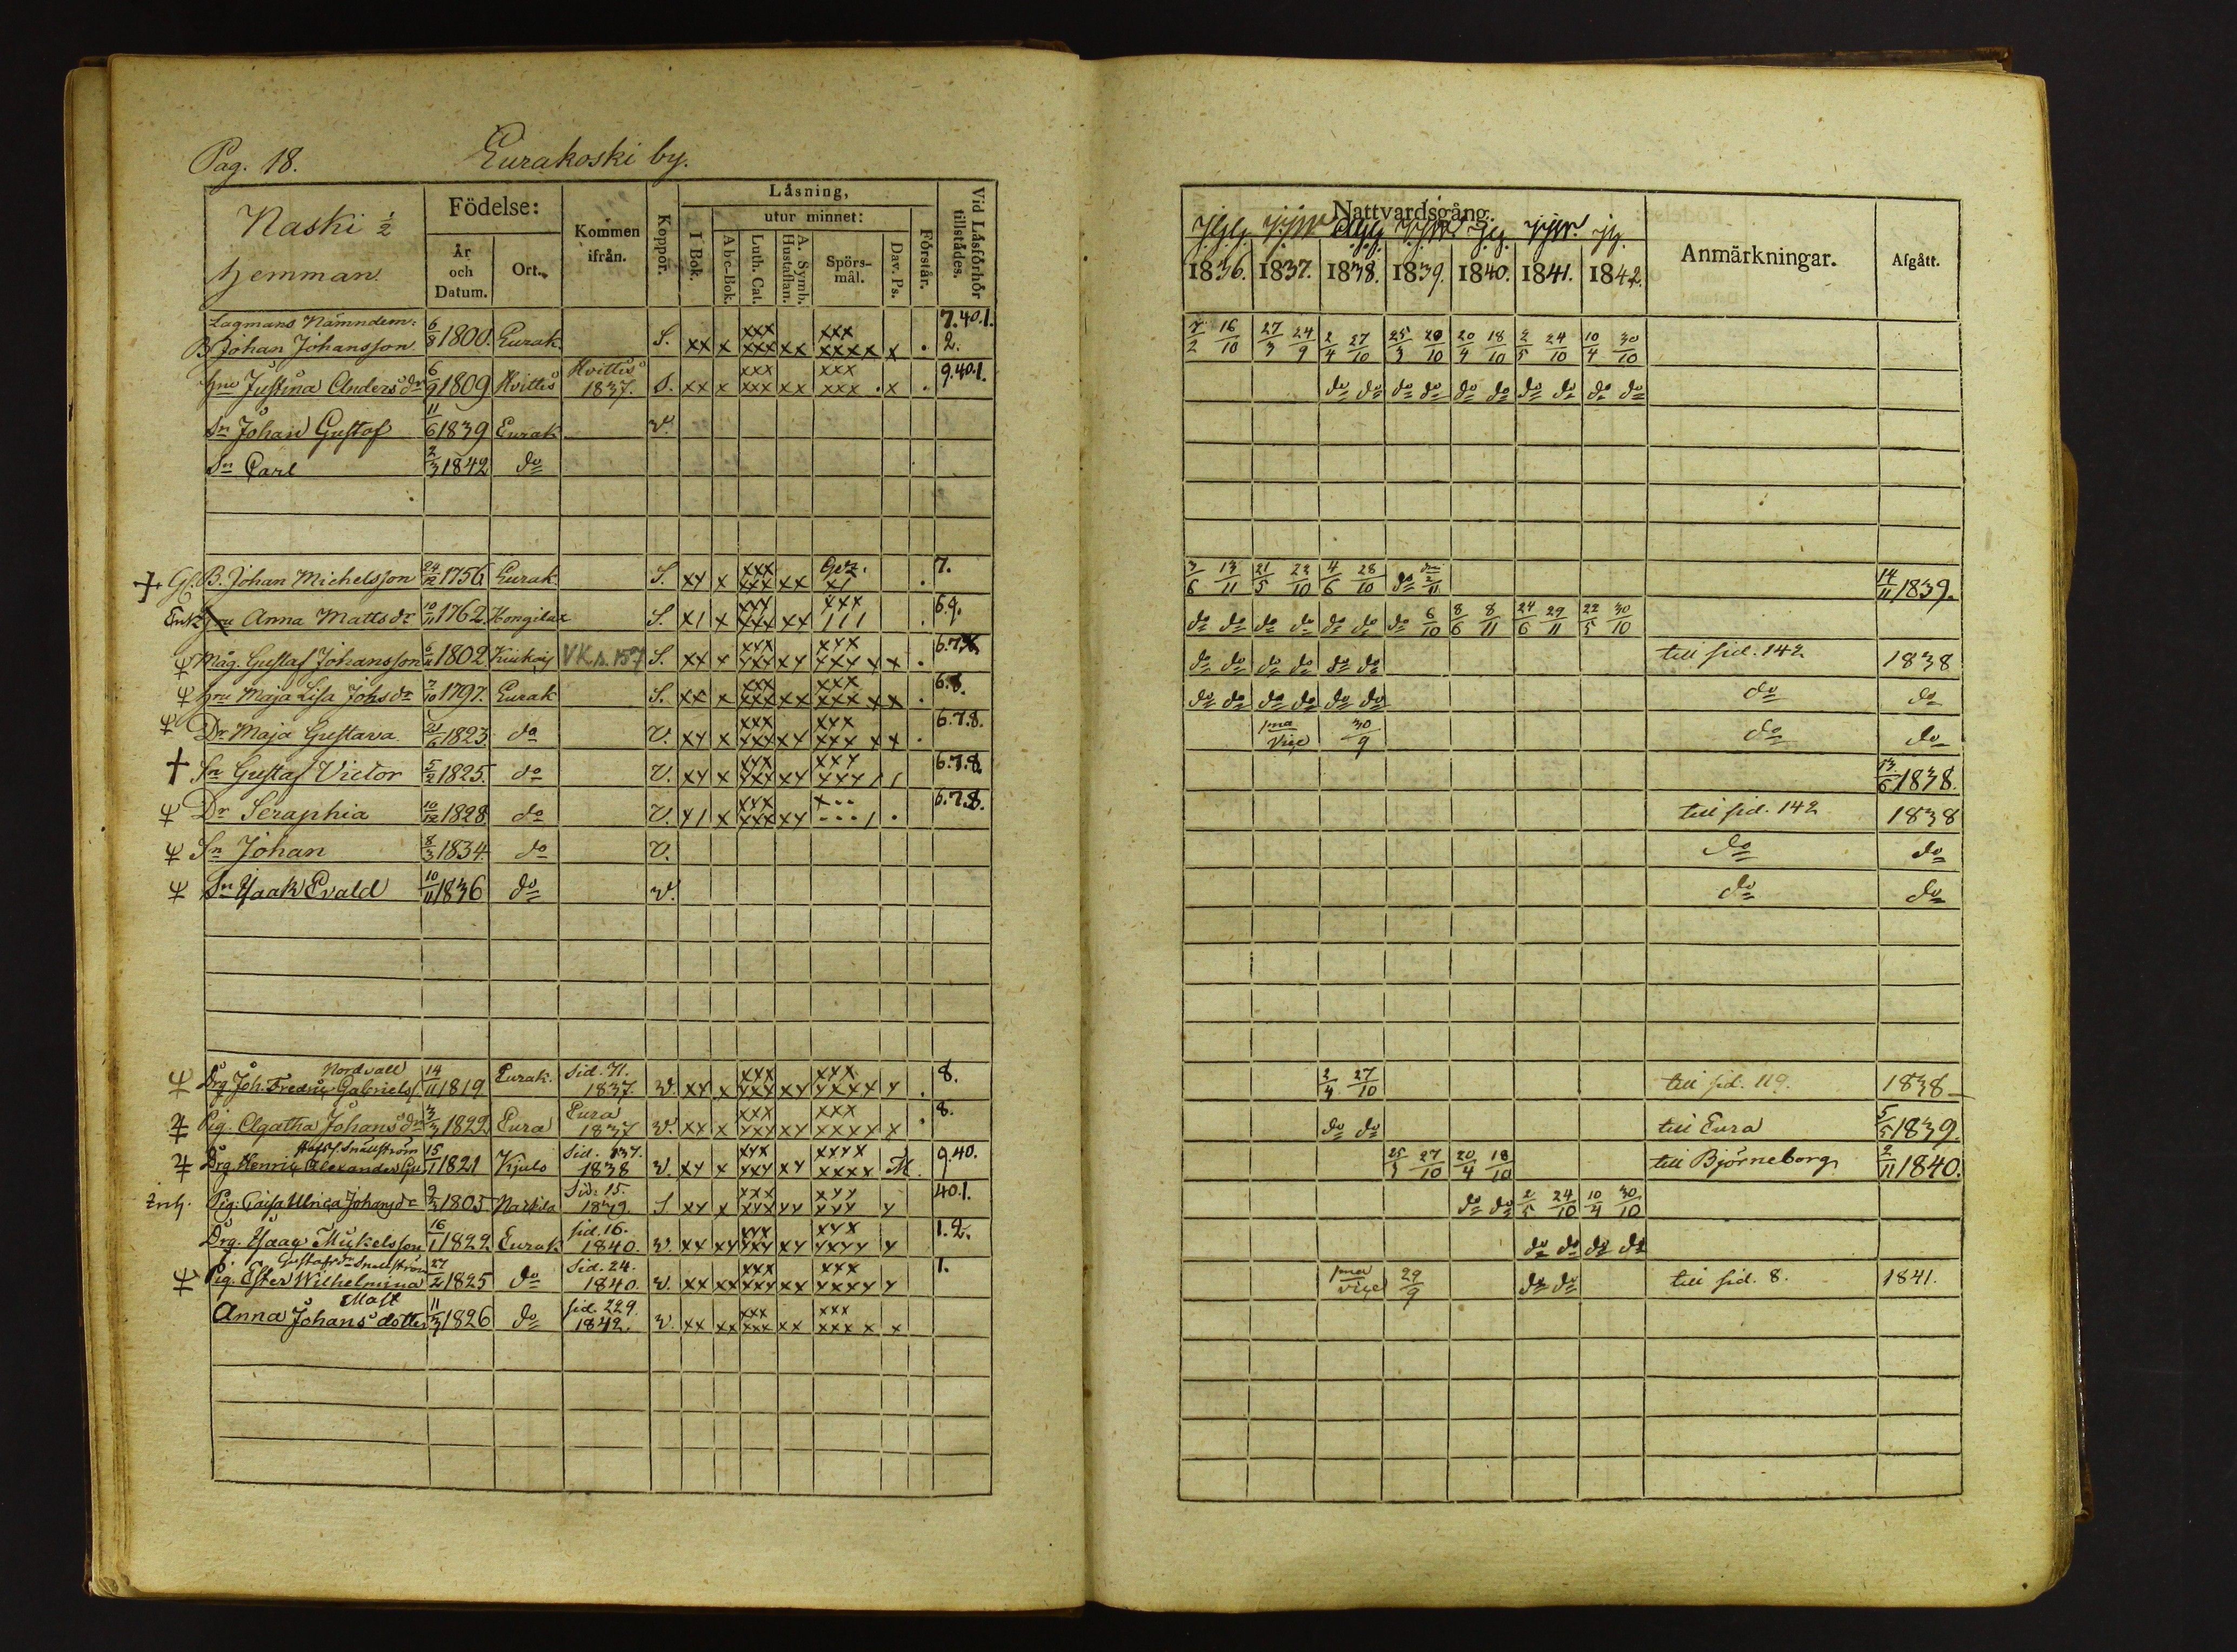 Pag. 18. Eurakoski by.
Naski 1/2
Hemman
Födelse:
År och Datum.
Ort.
Kommen ifrån.
Koppor.
Låsning,
I Bok.
utur minnet:
Abc-Bok.
Luth. Cat.
A. Symb. Hustaflan.
Spörs-mål.
Dav. Ps.
Förstår.
Vid Låsförhör tillstådes.
Nattvardsgång.
1836. 1837. 1838. 1839. 1840. 1841. 1842.
Anmärkningar.
Afgått.
Lagmans Nämndem: 7.40.1.
B Johan Johansson 6/8 1800. Eurak S. xx x xxx xxx xx xxx xxxx x . 2. 16/10 27/3 24/9 2/4 27/10 25/3 20/10 20/4 18/10 2/5 24/10 10/4 30/10
Hru Justina Anders dr 6/9 1809 Hvittis Hvittis 1837. S. xx x xxx xxx xx xxx xxx . x . 9.40.1. do do do do do do do do do do
Sn Johan Gustaf 11/6 1839 Eurak v.
Sn Carl 2/3 1842 do
Gl. B. Johan Michelsson 24/12 1756 Eurak S. xx x xxx xxx xx . 7. 3/6 13/11 21/5 22/10 4/6 28/10 do 14/11 1839.
Enk. Hru Anna Matts dr 10/11 1762. Hongilax S. x1 x xxx xxx xx xxx 111 . 6.9. do do do do do do do 6/10 8/6 8/11 24/6 29/11 22/5 30/10
Måg. Gustaf Johansson 6/11 1802 Kiukais VK s. 157 S. xx x xxx xxx xx xxx xxx x x . do do do do do do till sid. 142 1838
Hru Maja Lisa Johs dr 7/10 1797. Eurak S. xx x xxx xxx xx xxx xxx xx . 6.8. do do do do do do do do
Dr Maja Gustava 1823 do V. xx x xxx xxx xx xxx xxx x x . 6.7.8. 1ma vice 30/9 do do
† Sn Gustaf Victor 5/2 1825. do V. xx x xxx xxx xx xxx xxx 1 1 6.7.8. 13/6 1838.
Dr Seraphia 10/12 1828 do V. x1 x xxx xxx xx 6.7.8. till sid. 142 1838
Sn Johan 8/3 1834. do V. do do
Sn Isaak Evald 10/11 1836 do v. do do
Nordvall
Drg. Joh. Fredric Gabrielss. 14/11 1819 Eurak. Sid. 71. 1837. v. xx x xxx xxx xx xxx xxxx x . 8. 2/4 27/10 till sid. 119. 1838
Pig. Agatha Johans dr 3/3 1822 Eura Eura 1837 v. xx x xxx xxx xx xxx xxxx x . 8. do do till Eura 5/5 1839.
Snällström
Drg. Henric Alexander 15/1 1821 Kjulo Sid. 137. 1838 v. xx x xxx xxx xx xxxx xxxx 9.40. 25/3 27/10 20/4 18/10 till Björneborg 2/11 1840.
Inh. Pig. Caisa Ulrica Johans dr 1805 Narkila Sid. 15. 1839. S xx x xxx xxx xx xxx xxx x 40.1. do do 2/5 24/10 10/4 30/10
Drg. Isaac Mickelsson 16/1 1822 Eurak sid. 16. 1840. v. xx xx xxx xxx xx xxx xxxx x 1.2. do do do do
Gustafs dr Snällström
Pig. Ester Wilhelmina 27/2 1825 do Sid. 24. 1840. v. xx xx xxx xxx xx xxx xxxx x 1. 1ma vice 29/9 do do till sid. 8. 1841.
Mast
Anna Johans dotter 11/3 1826 do sid. 229. 1842. v. xx xx xxx xxx xx xxx xxx x x